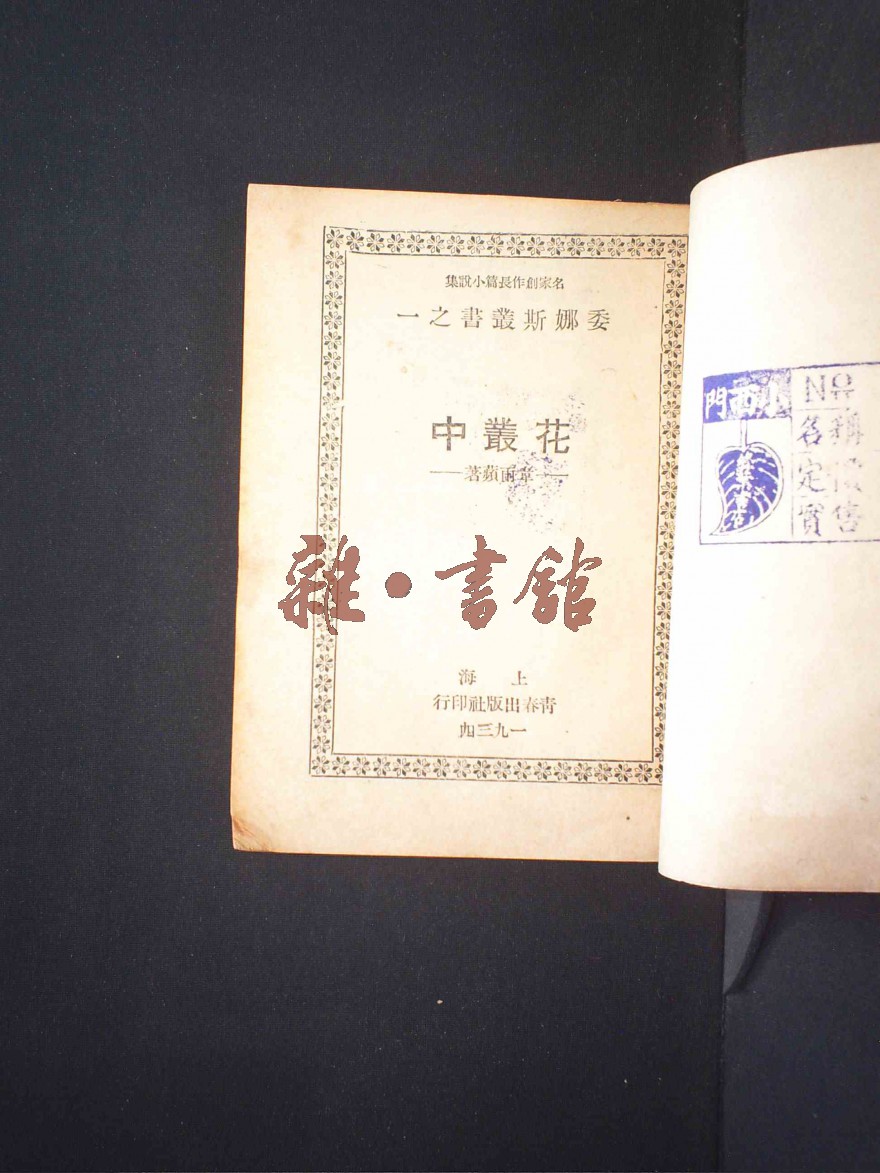 名家創作長篇小說集
委娜斯叢書之一
花叢中
章雨蘋著
雜·書舘
上海
青春出版社印行
一九三四
小西門
No
名稱
定價
實售